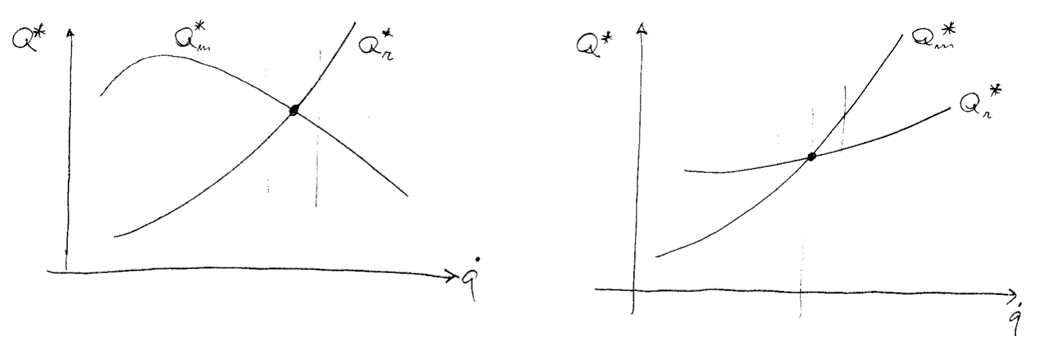 Q*
Q*m
Q*r
q̇
Q*
Q*m
Q*r
q̇